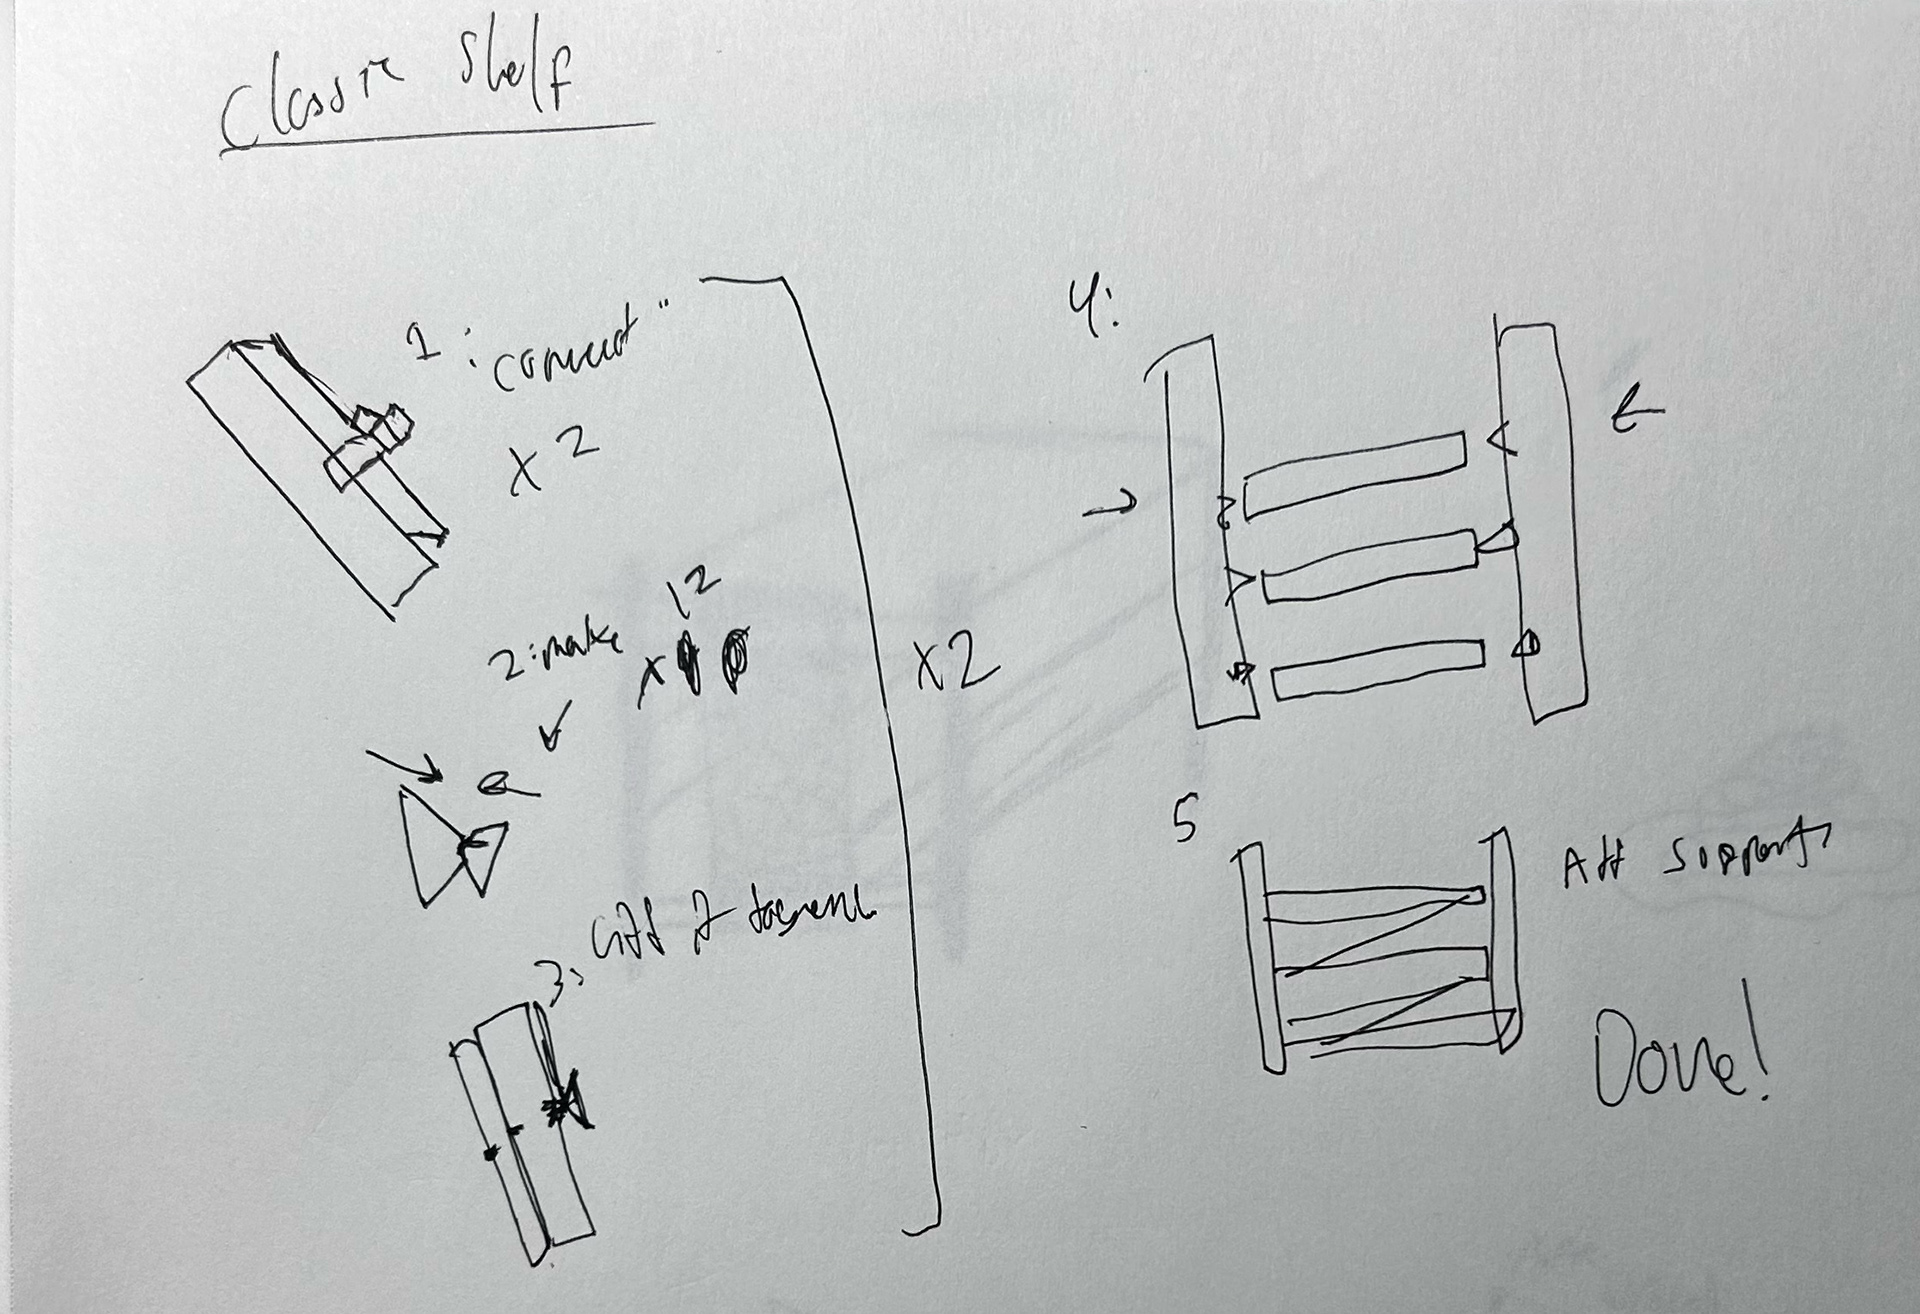 Classic Shelf
1: connect
x2
2: make x12
3: 
x2
4:
5
Add supports
Done!